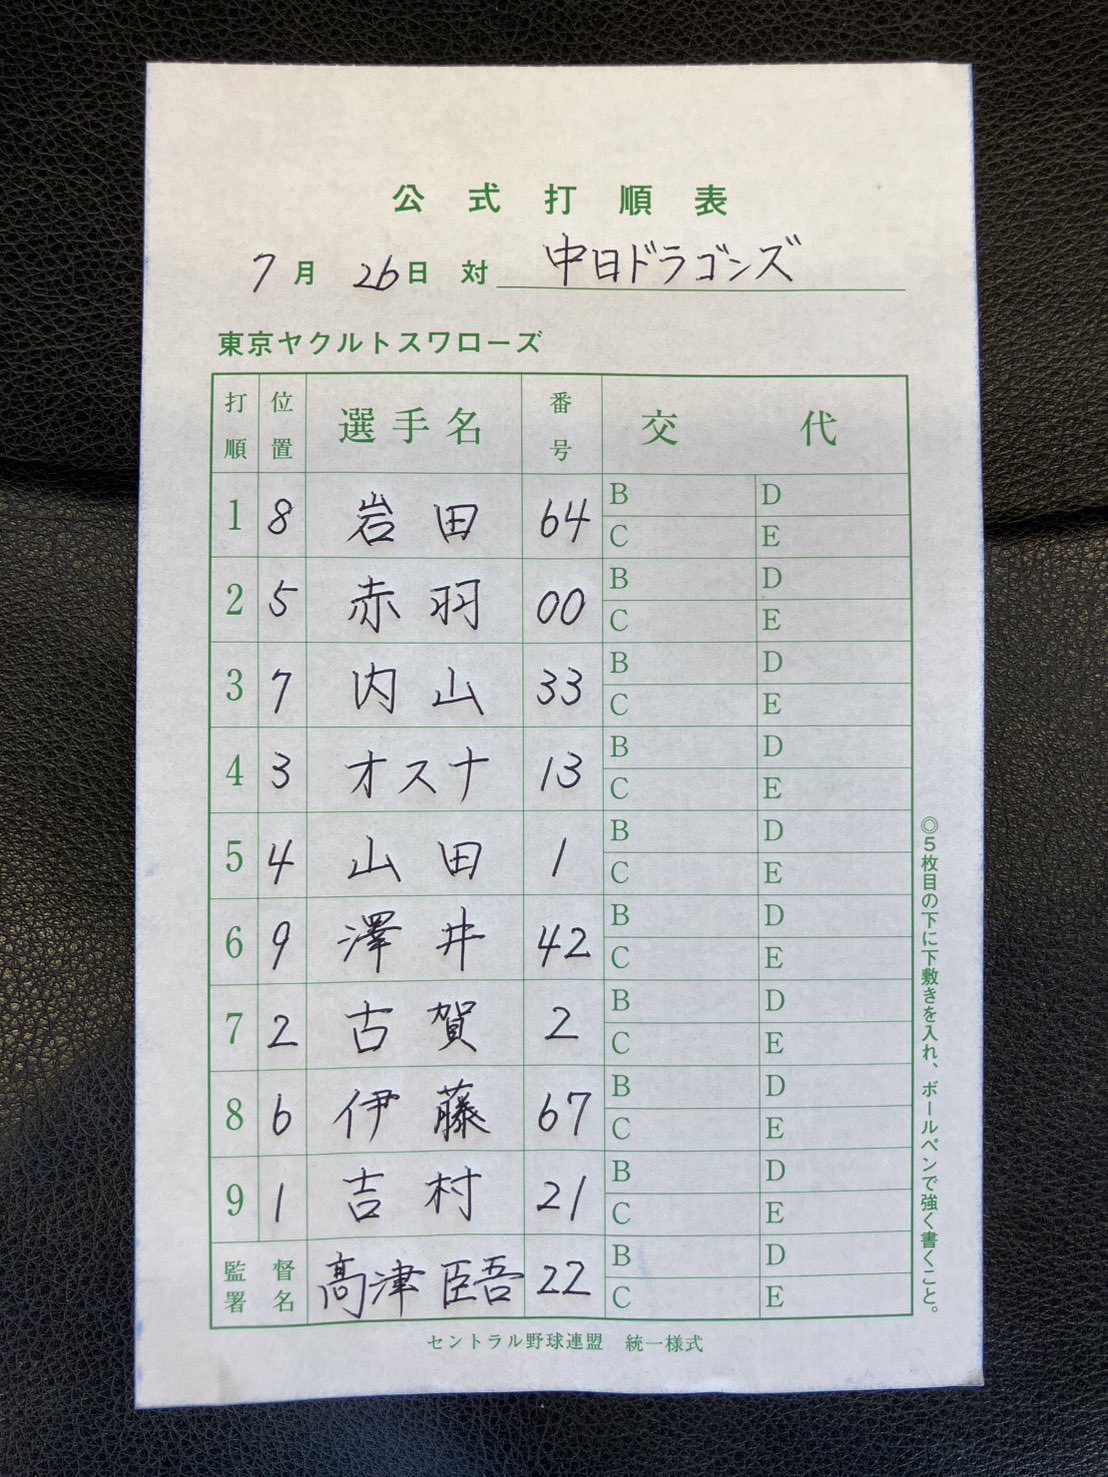 公式打順表
7月 26日 対 中日ドラゴンズ
東京ヤクルトスワローズ
打順 位置 選手名 番号 交代
1 8 岩田 64 B D
C E
2 5 赤羽 00 B D
C E
3 7 内山 33 B D
C E
4 3 オスナ 13 B D
C E
5 4 山田 1 B D
C E
6 9 澤井 42 B D
C E
7 2 古賀 2 B D
C E
8 6 伊藤 67 B D
C E
9 1 吉村 21 B D
C E
監督署名 髙津臣吾 22 B D
C E
セントラル野球連盟 統一様式
◎5枚目の下に下敷きを入れ、ボールペンで強く書くこと。